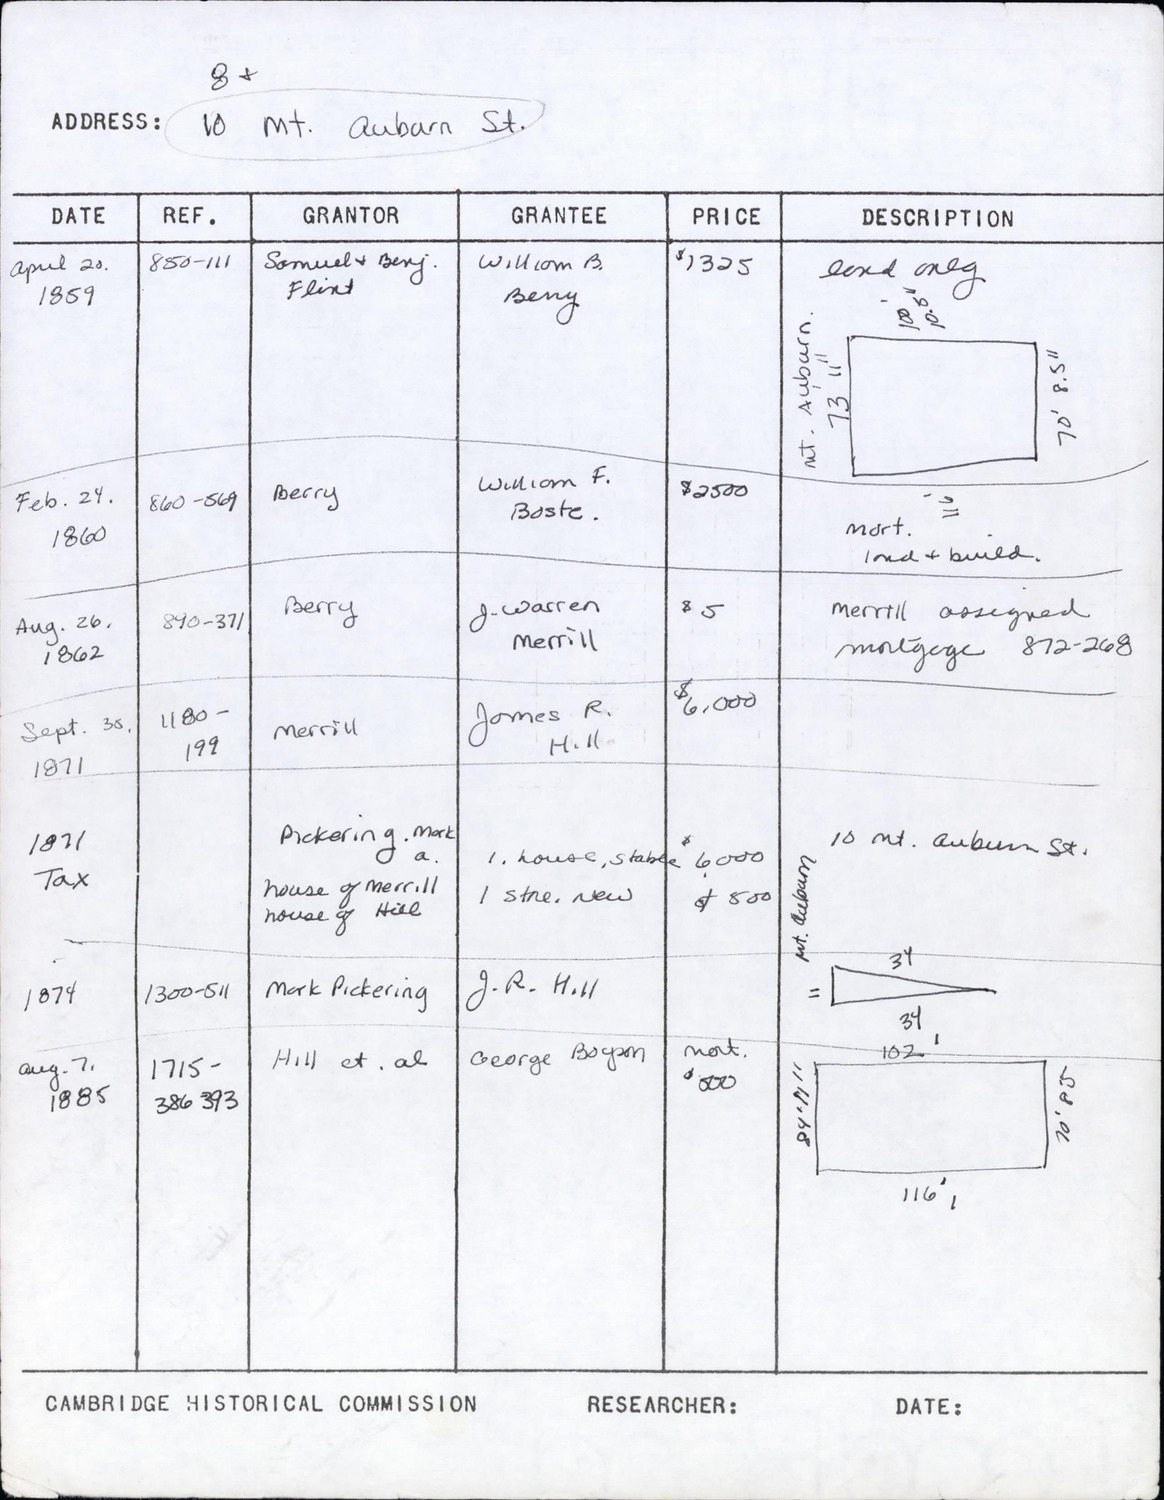 8 +
ADDRESS: 10 Mt. Auburn St.
DATE REF. GRANTOR GRANTEE PRICE DESCRIPTION
April 20. 850-111 Samuel + Benj. William B. $1325 land only
1859 Flint Berry
100'
10.5"
Mt. Auburn.
73 11"
70' 8.5"
Feb. 24. 860-569 Berry William F. $2500
1860 Boste.
mort.
land + build.
Aug. 26. 890-371 Berry J. Warren $5 Merrill assigned
1862 Merrill mortgage 872-268
Sept. 30. 1180- Merrill James R. $6,000
1871 199 Hill
1871 Pickering. Mark 10 Mt. Auburn St.
Tax a. 1. house, stable $6,000
house of Merrill 1 stre. New $500
house of Hill
Mt. Auburn
34
1874 1300-511 Mark Pickering J. R. Hill
11
34
Aug. 7. 1715- Hill et. al George mort.
1885 386 393 $500
102'
70' 8.5
116' 1
CAMBRIDGE HISTORICAL COMMISSION RESEARCHER: DATE: